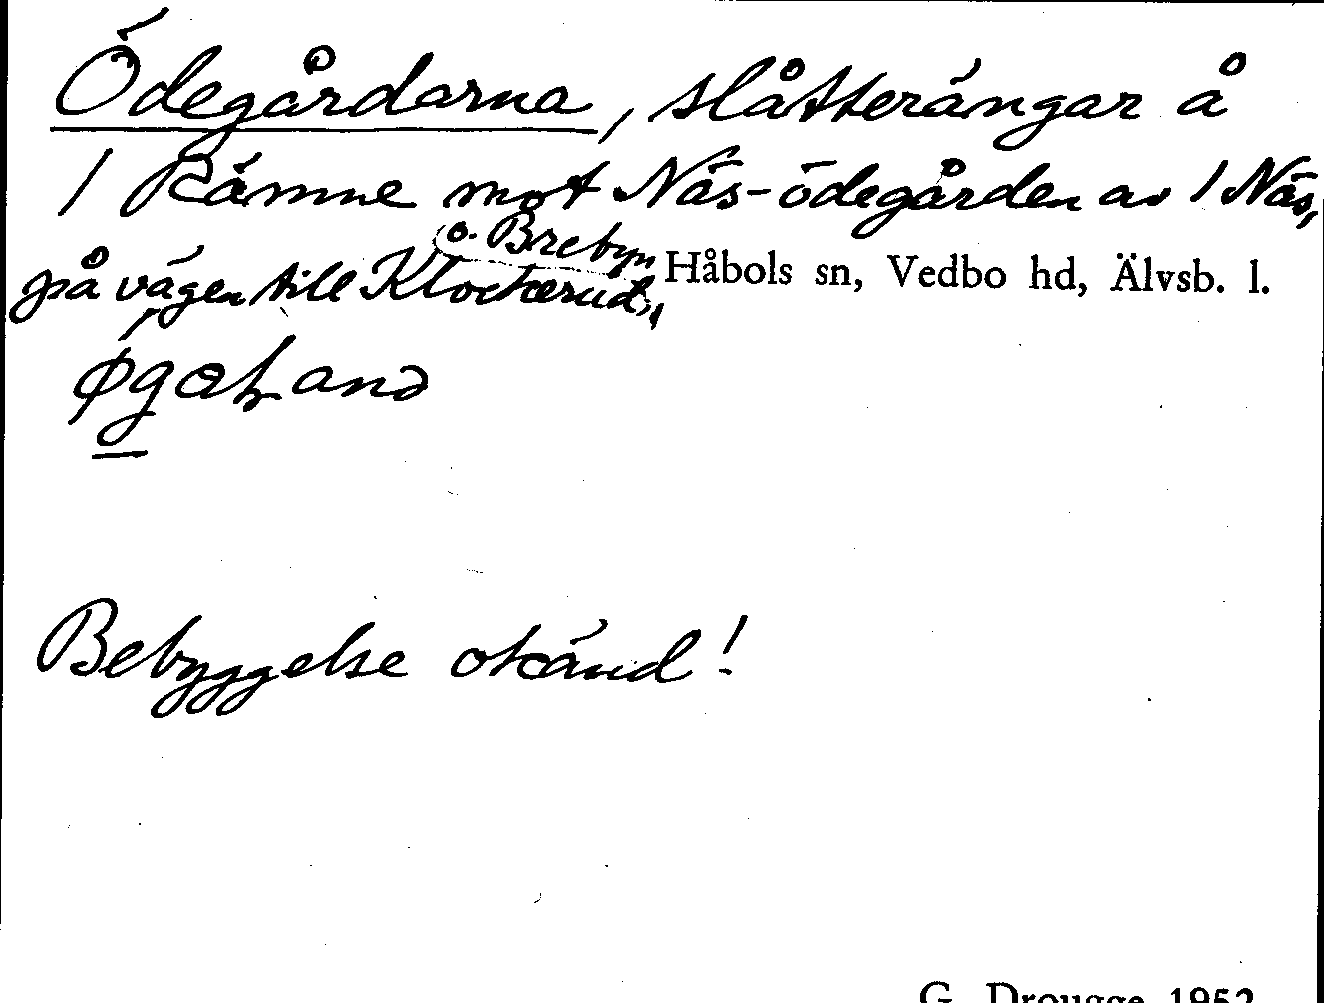 Ödegårdarna, slåtterängar å
1 Rämne mot Näs-ödegården av 1 Näs,
på vägen till Klockerud, o. Brebyn
Håbols sn, Vedbo hd, Älvsb. l.
Bebyggelse okänd!
G. Drougge 1952